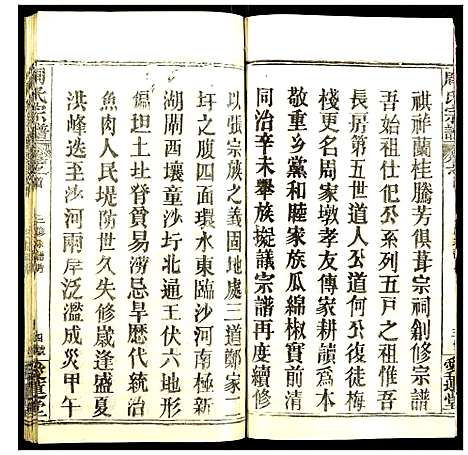 周氏宗譜
愛蓮堂
祺祥蘭桂騰芳俱葺宗祠創修宗譜
吾始祖仕𠔃公系列五戸之祖惟吾
長房第五世道人公於何公復徒梅
棧更名周家墩孝友傳家耕讀爲本
敬重乡黨和睦家族瓜綿椒實前於
同治辛未舉族擬議宗譜再度續修
以張宗族之義固地處三道鄭家二
圩之腹四面環水東臨沙河南極新
湖闸西壤童沙圻北通王伏六垅地
偏坦土圵脊貧易涝忌旱歷代統治
魚肉人民堤防世久失修歲逢盛夏
洪峰迭至沙河兩岸泛濫成災甲午
周氏宗譜
愛蓮堂